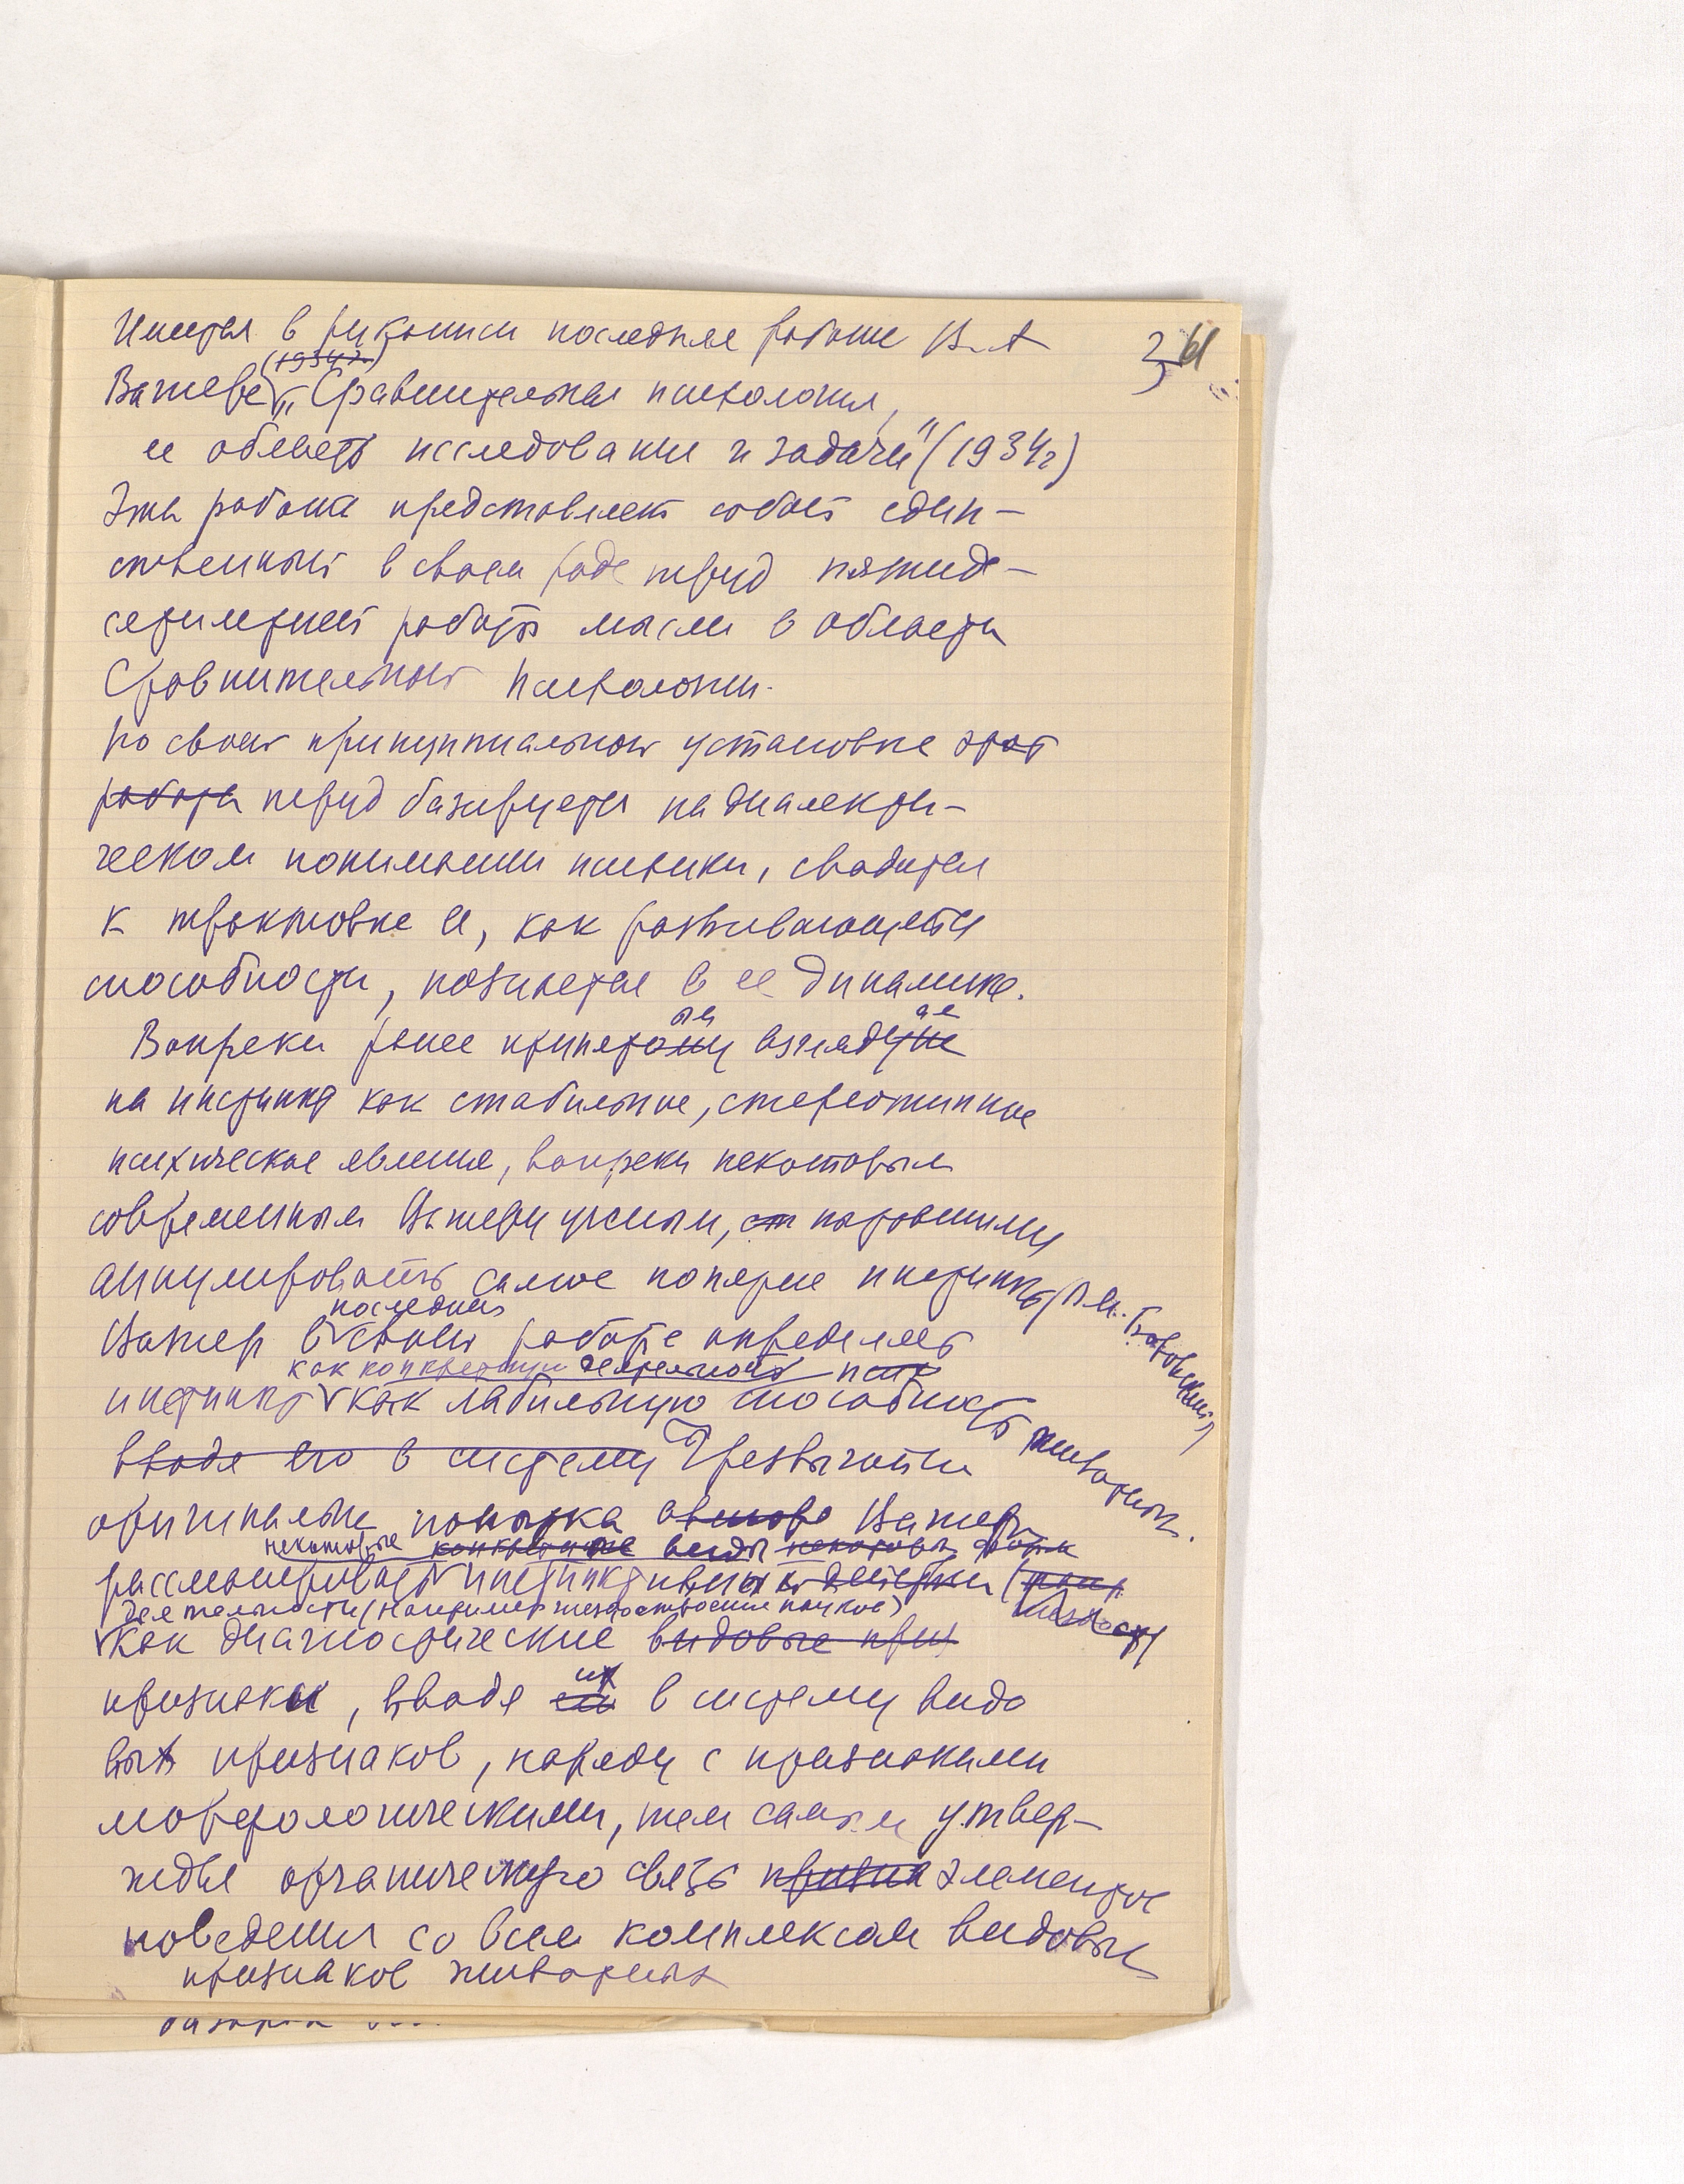 Имеется в рукописи последняя работа В.А. 361
(1934 г.)
Вагнера „Сравнительная психология,
ее область исследования и задачи" (1934 г)
Эта работа представляет собой един-
ственный в своем роде труд пятиде-
сятилетней работы мысли в области
Сравнительной психологии.
По своей принципиальной установке этот
работа труд базируется на диалекти-
ческом понимании психики, сводится
к трактовке ее, как развивающейся
способности, познается в ее динамике.
Вопреки ранее принятому взгляду
на инстинкт как стабильное, стереотипное
психическое явление, вопреки некоторым
современным Вагнеру ученым,
аннулировать самое понятие инстинкта (В.М. Боровский)
последней
Вагнер в своей работе определяет
как конкретную деятельность псих
инстинкт как лабильную способность животных.
вводя его в систему Чрезвычайно
оригинальна попытка Вагнера
некоторые конкретные виды
рассматривать инстинктивных
деятельности (например гнездостроение пауков)
как диагностические видовые приз
их
признаки, вводя в систему видо
вых признаков, наряду с признаками
морфологическими, тем самым утвер-
ждая органическую связь призна элементов
поведения со всем комплексом видовых
признаков животных